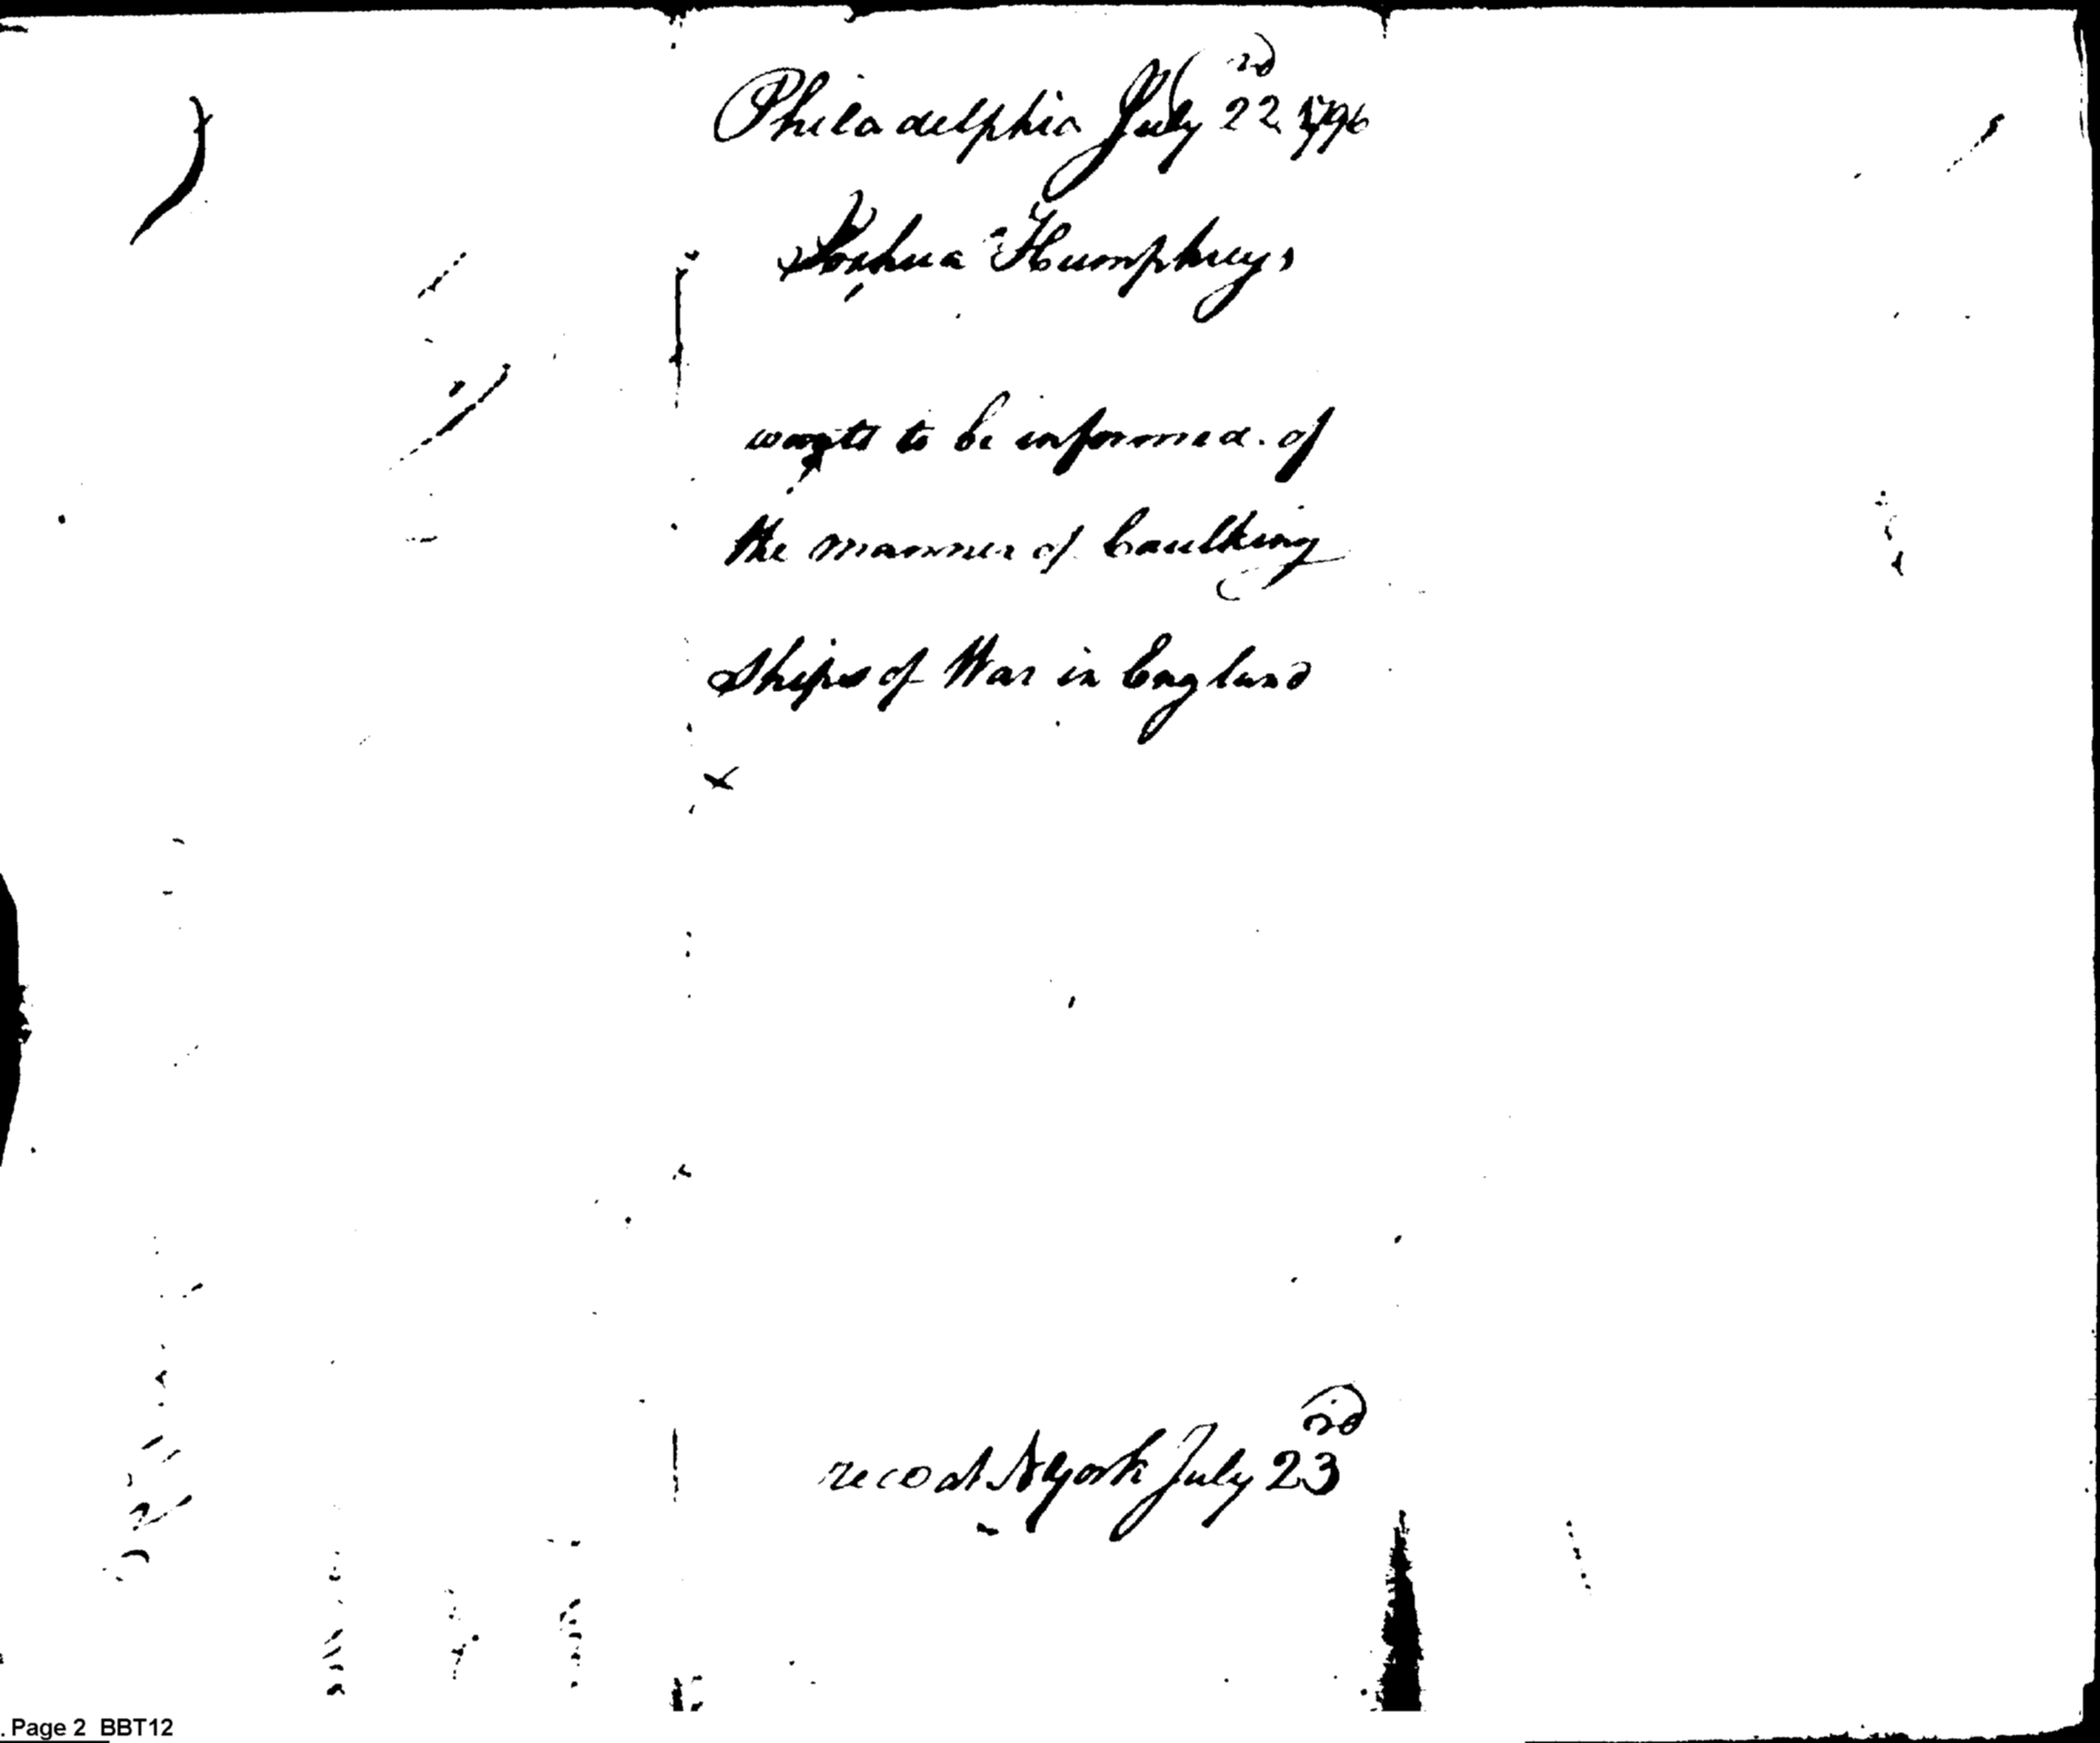 Philadelphia July 22nd 1796
Joshua Humphreys
wants to be informed of
the manner of Caulking
Ships of War in England
recd at N York July 23rd
. Page 2 BBT12